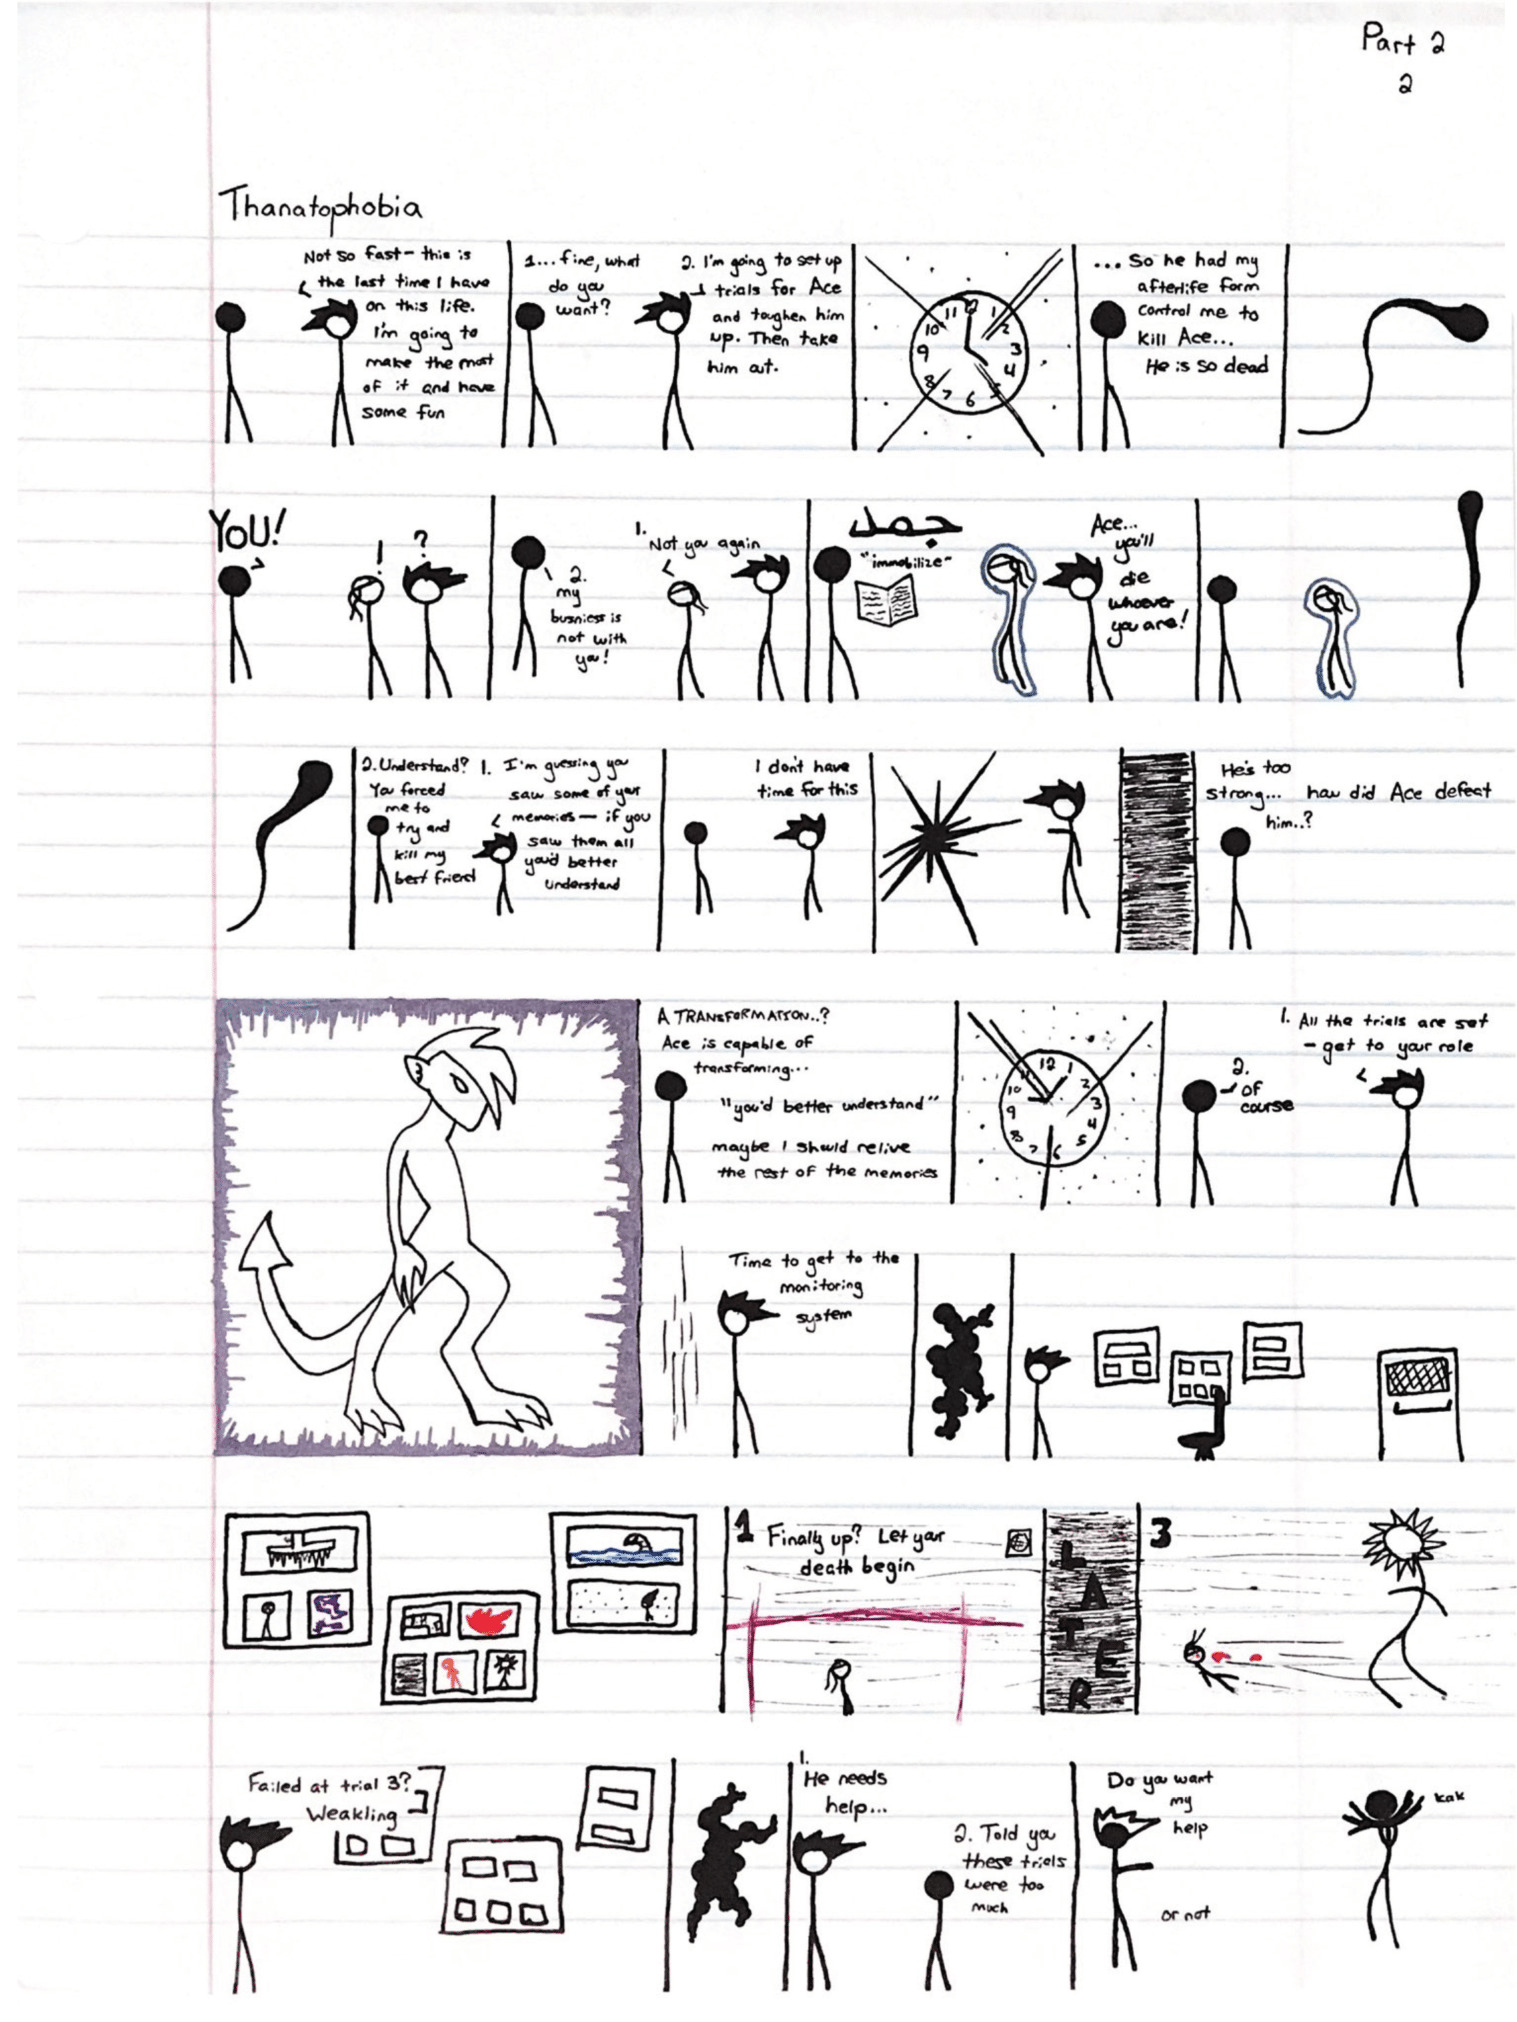 Part 2
2
Thanatophobia
Not so fast— this is
the last time I have
on this life.
I'm going to
make the most
of it and have
some fun
1... fine, what
do you
want?
2. I'm going to set up
trials for Ace
and toughen him
up. Then take
him out.
11 12 1
10 2
9 3
8 4
7 6 5
... So he had my
afterlife form
control me to
kill Ace...
He is so dead
YOU!
!
?
2.
my
busniess is
not with
you!
1.
Not you again
"immobilize"
Ace...
you'll
die
whoever
you are!
2. Understand?
You forced
me to
try and
kill my
best friend
1. I'm guessing you
saw some of your
memories— if you
saw them all
you'd better
understand
I don't have
time for this
He's too
strong... how did Ace defeat
him..?
A TRANSFORMATION..?
Ace is capable of
transforming...
"you'd better understand"
maybe I should relive
the rest of the memories
11 12 1
10 2
9 3
8 4
7 6 5
1. All the trials are set
– get to your role
2.
Of
course
Time to get to the
monitoring
system
1 Finally up? Let your
death begin
LATER
3
Failed at trial 3?
Weakling
1.
He needs
help...
2. Told you
these trials
were too
much
Do you want
my
help
or not
kak